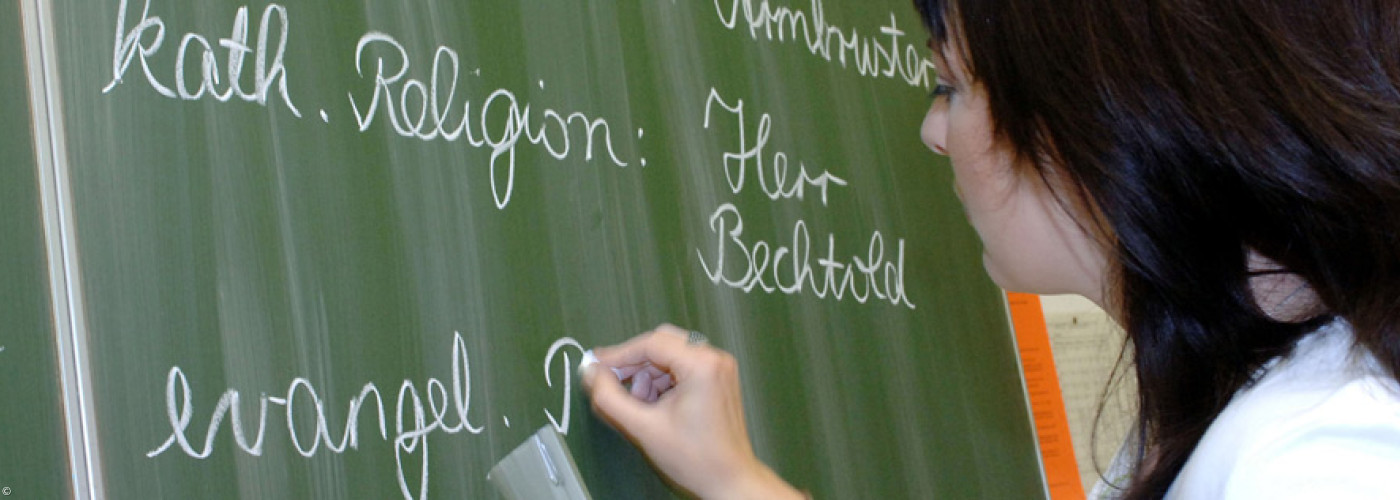 Armbruster
kath. Religion: Herr
Bechtold
evangel. R
©